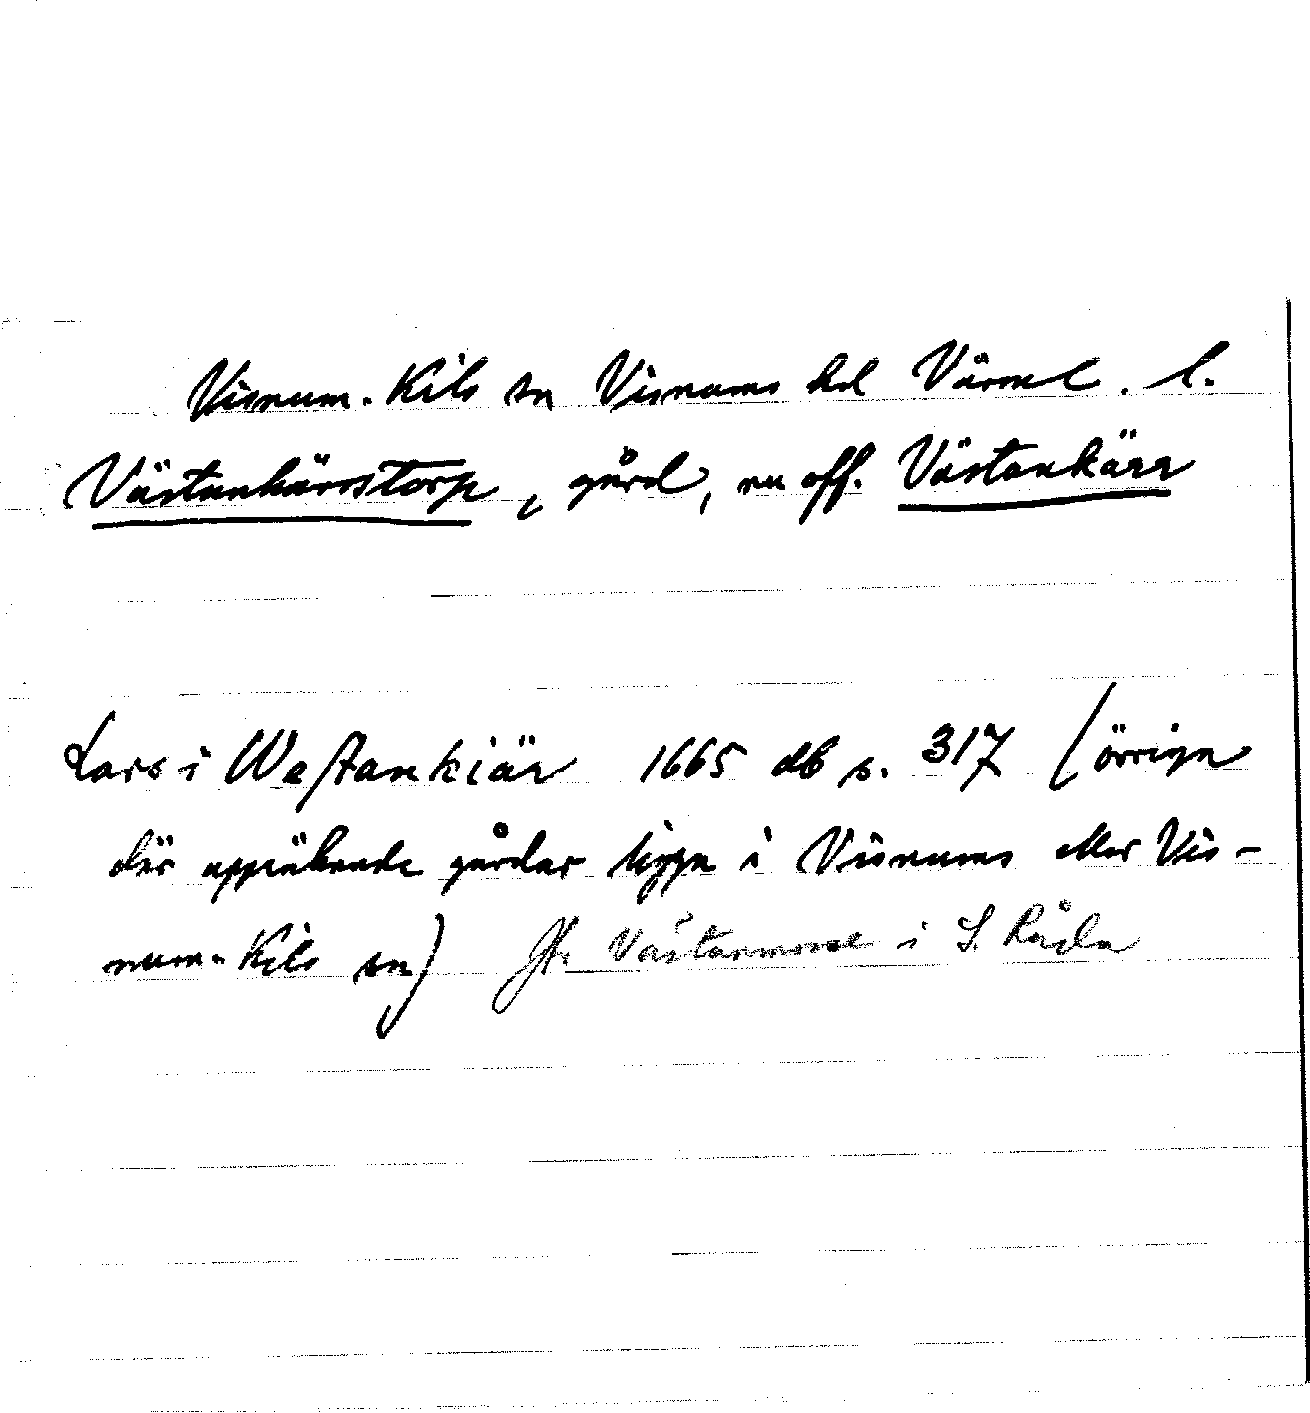 Visnum-Kils sn Visnums hd Värml. l.
Västankärrstorp, gård, nu off. Västankärr
Lars i Westankiär 1665 db s. 317 (övriga
där uppräknade gårdar ligga i Visnums eller Vis-
num-Kils sn) Jfr Västanmosse i S. Råda